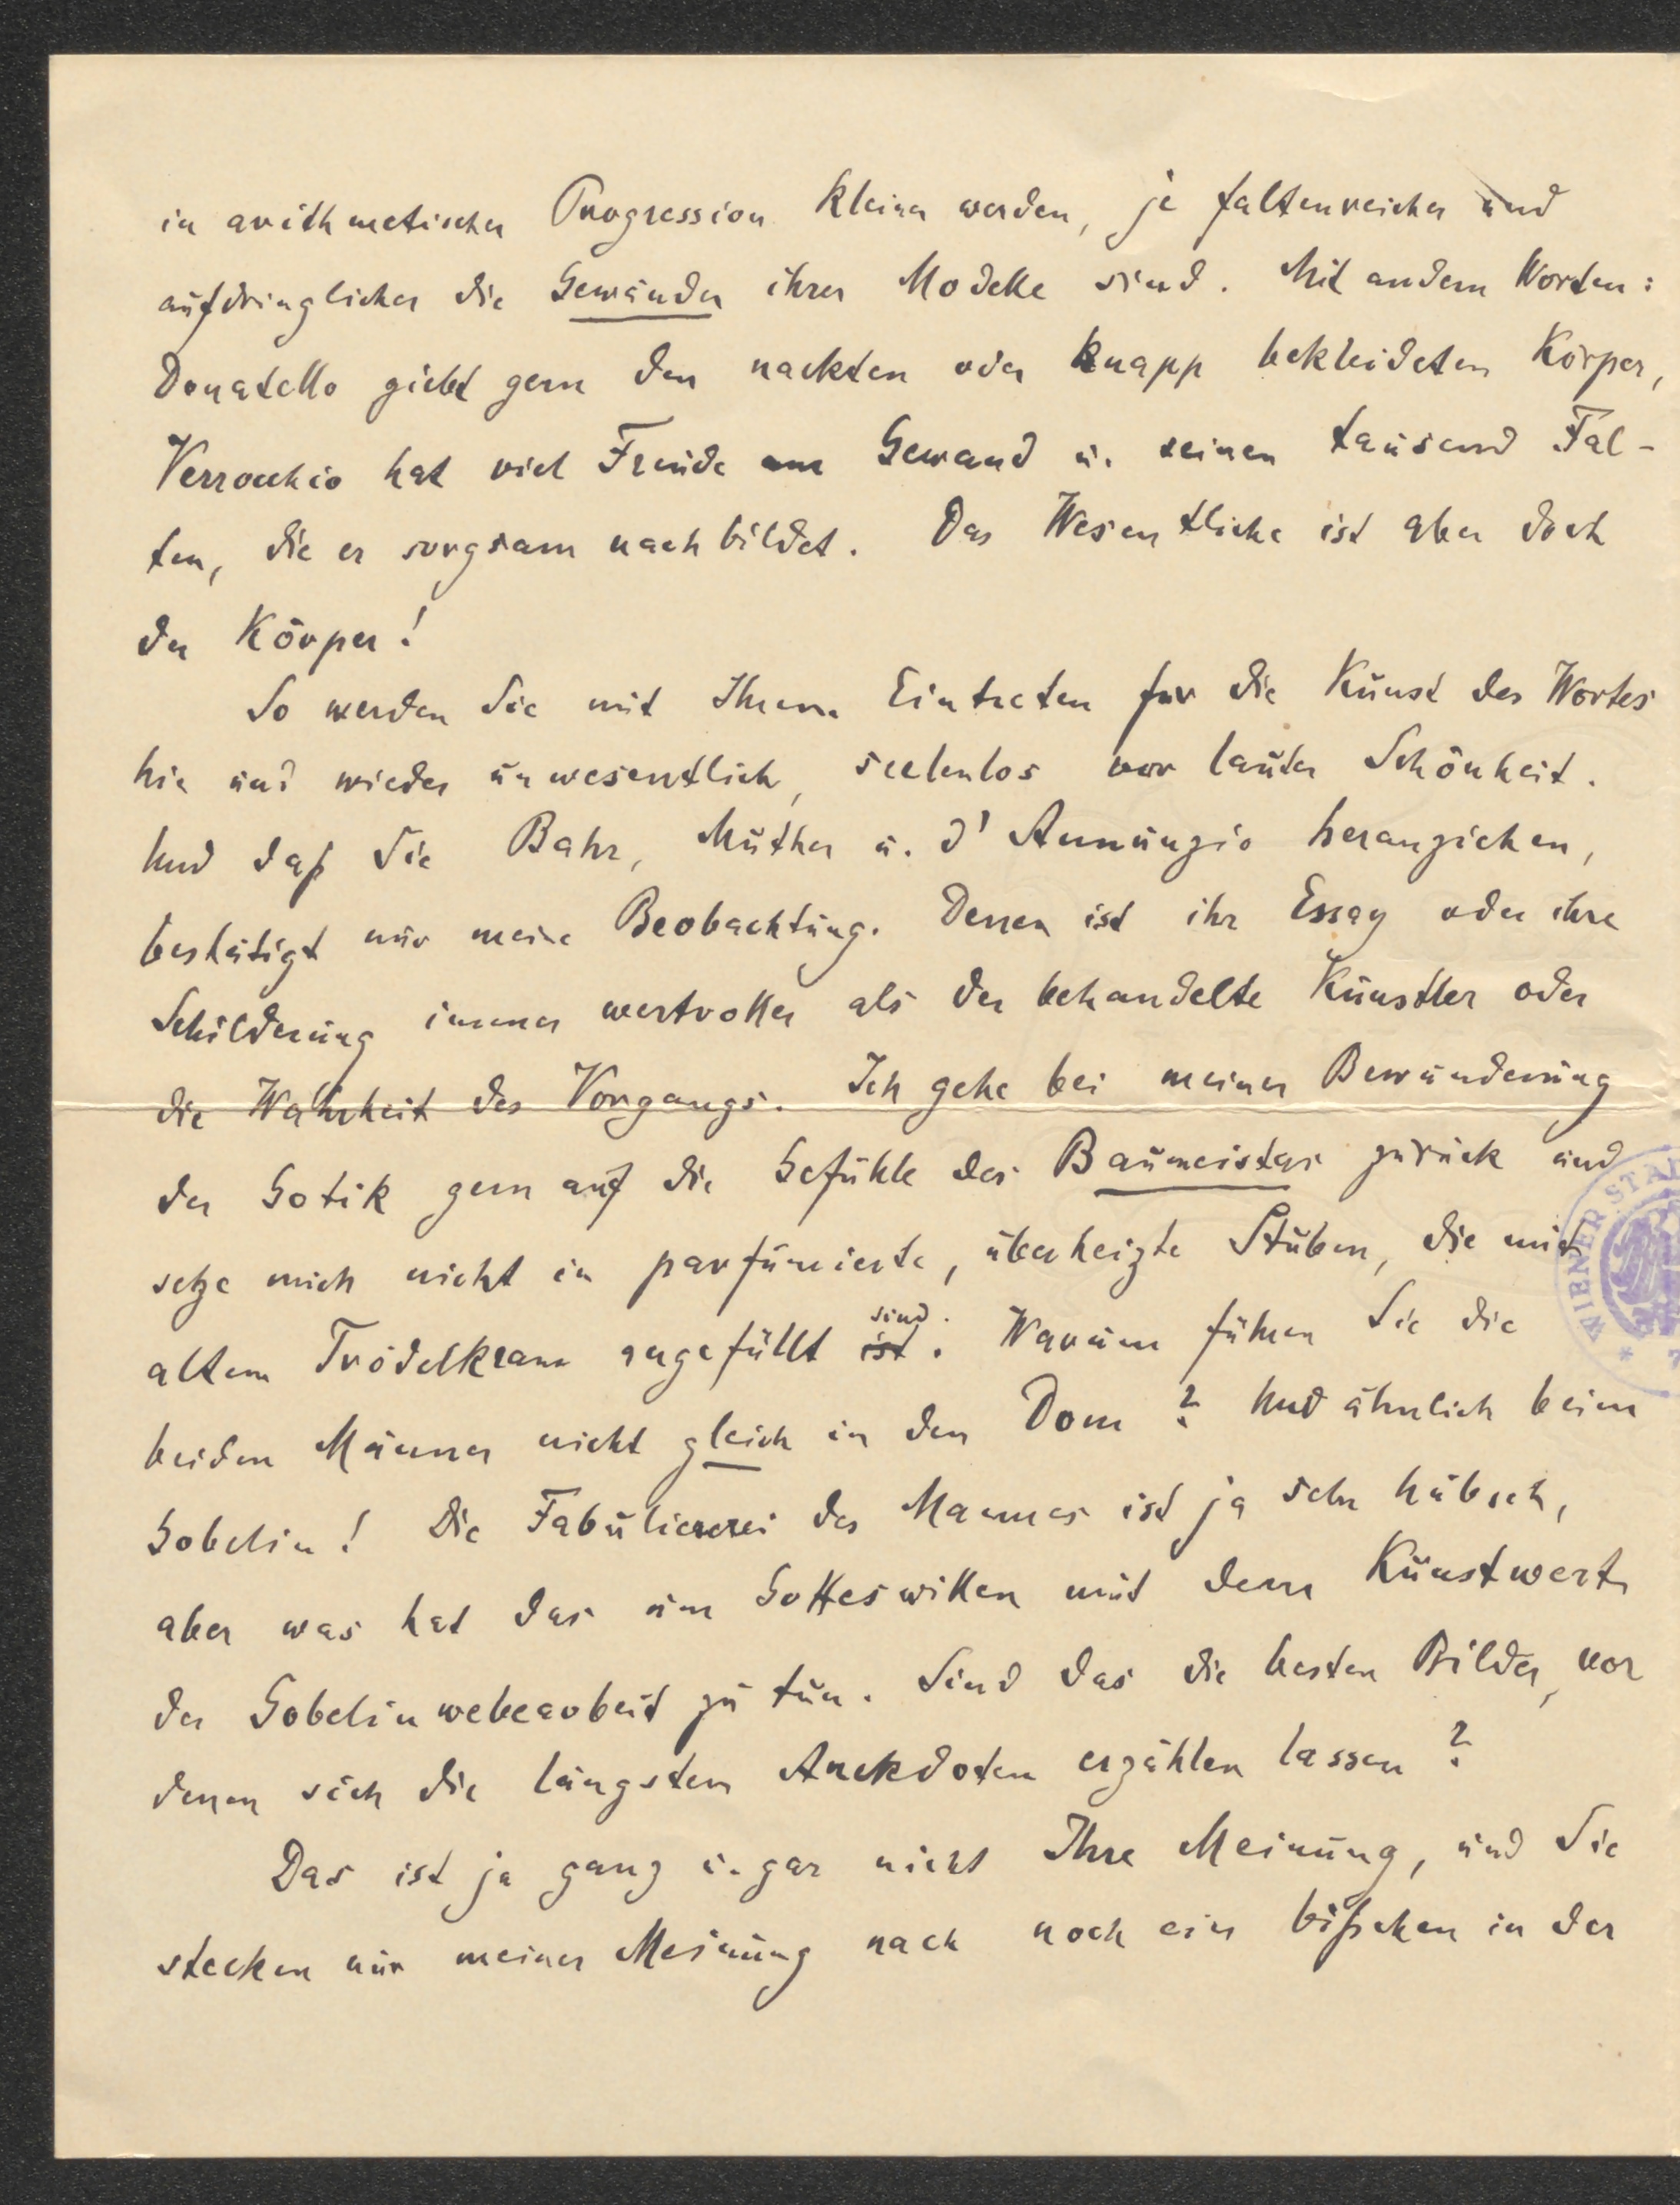 in arithmetischer Progression kleiner werden, je faltenreicher und
aufdringlicher die Gewänder ihrer Modelle sind. Mit andern Worten:
Donatello giebt gern den nackten oder knapp bekleideten Körper,
Verrocchio hat viel Freude am Gewand u. seinen tausend Fal-
ten, die er sorgsam nachbildet. Das Wesentliche ist aber doch
der Körper!
So werden Sie mit Ihrem Eintreten für die Kunst des Wortes
hie und wieder unwesentlich, seelenlos vor lauter Schönheit.
Und daß Sie Bahr, Muther u. d'Annunzio heranziehen,
bestätigt nur meine Beobachtung. Denen ist ihr Essay oder ihre
Schilderung immer wertvoller als der behandelte Künstler oder
die Wahrheit des Vorgangs. Ich gehe bei meiner Bewunderung
der Gotik gern auf die Gefühle des Baumeisters zurück und
setze mich nicht in parfümierte, überheizte Stuben, die mit
altem Trödelkram angefüllt ist sind. Warum führen Sie die
beiden Männer nicht gleich in den Dom? Und ähnlich beim
Gobelin! Die Fabuliererei des Mannes ist ja sehr hübsch,
aber was hat das um Gotteswillen mit dem Kunstwert
der Gobelinwebearbeit zu tun. Sind das die besten Bilder, vor
denen sich die längsten Anekdoten erzählen lassen?
Das ist ja ganz u. gar nicht Ihre Meinung, und Sie
stecken nur meiner Meinung nach noch ein bißchen in der
WIENER STA